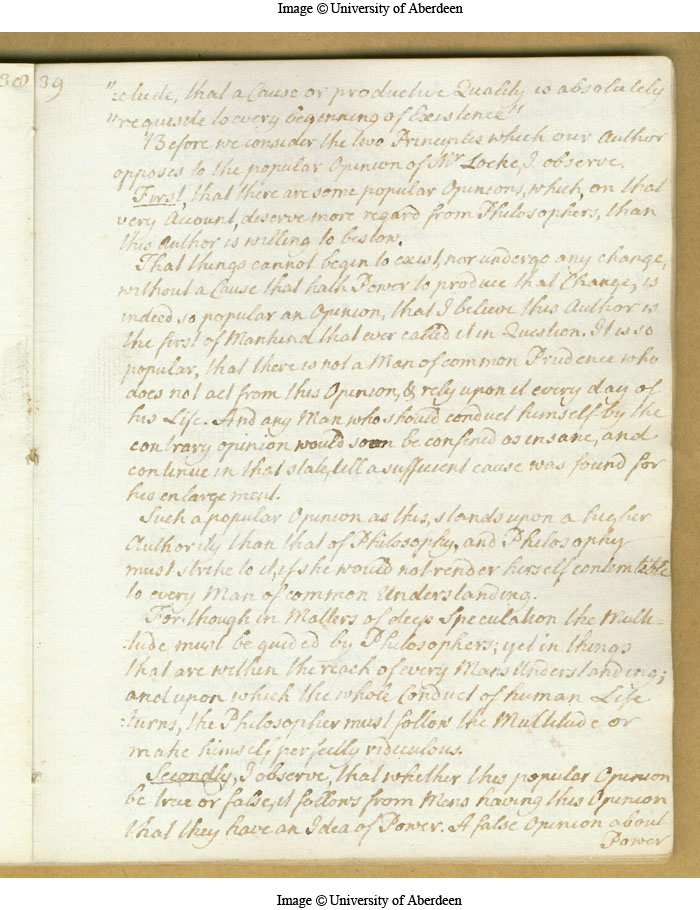 Image © University of Aberdeen
38 39
":clude, that a Cause or productive Quality is absolutely
"requisite to every beginning of Existence"
Before we consider the two Principles which our Author
opposes to the popular Opinion of Mr Locke, I observe,
First, that there are some popular Opinions, which, on that
very Account, deserve more regard from Philosophers, than
this Author is willing to bestow.
That things cannot begin to exist, nor undergo any change,
without a Cause that hath Power to produce that Change, is
indeed so popular an Opinion, that I believe this Author is
the first of Mankind that ever called it in Question. It is so
popular, that there is not a Man of common Prudence who
does not act from this Opinion, & rely upon it every day of
his Life. And any Man who should conduct himself by the
contrary opinion would soon be confined as insane, and
continue in that state, till a sufficient cause was found for
his enlargement.
Such a popular Opinion as this, stands upon a higher
Authority than that of Philosophy, and Philosophy
must strike to it, if she would not render herself contemtible
to every Man of common Understanding.
For though in Matters of deep Speculation the Multi-
:tude must be guided by Philosophers; yet in things
that are within the reach of every Mans Understanding;
and upon which the whole Conduct of human Life
:turns, the Philosopher must follow the Multitude or
make himself perfectly ridiculous.
Secondly, I observe, that whether this popular Opinion
be true or false, it follows from Mens having this Opinion
that they have an Idea of Power. A false Opinion about
Power
Image © University of Aberdeen